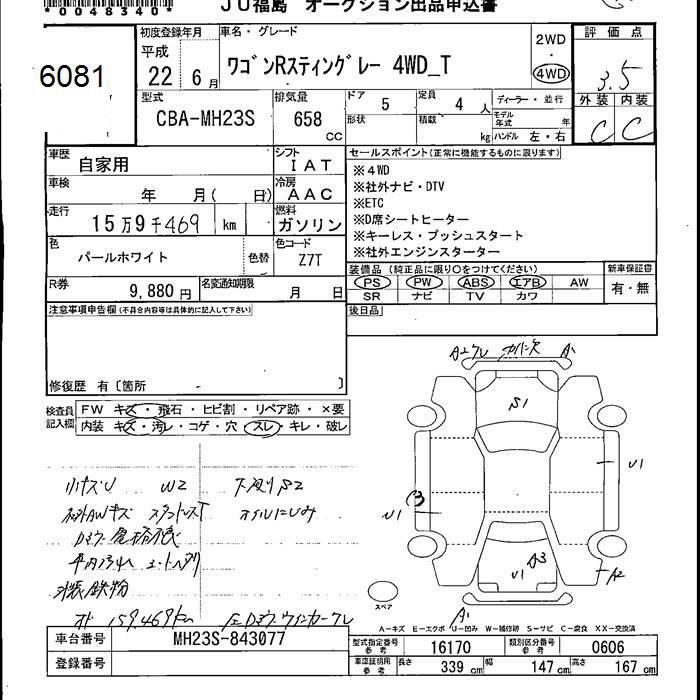 *0048340*
JU福島 オークション出品申込書
6081
初度登録年月 車名・グレード
平成 22 6月
ワゴンRスティングレー 4WD_T
2WD
4WD
評価点
3.5
外装 内装
C C
型式
CBA-MH23S
排気量
658 CC
ドア 5 定員 4人
形状 積載 kg
ディーラー・並行
モデル年式 年
ハンドル 左・右
車歴 自家用
シフト IAT
車検 年 月( 日)
冷房 AAC
走行 15万9千469 km
燃料 ガソリン
色 パールホワイト 色替
色コード Z7T
R券 9,880円 名変通知期限 月 日
セールスポイント(正常に機能するものに限ります)
※4WD
※社外ナビ・DTV
※ETC
※D席シートヒーター
※キーレス・プッシュスタート
※社外エンジンスターター
装備品 (純正品に限り○をつけてください) 新車保証書
PS PW ABS エアB AW 有・無
SR ナビ TV カワ
後日品
注意事項申告欄(不具合内容等は具体的に記入して下さい)
修復歴 有〔箇所 〕
検査員記入欄
FW キズ・飛石・ヒビ割・リペア跡・×要
内装 キズ・汚レ・コゲ・穴・スレ・キレ・破レ
A1
S1
U1
U1
A3
U1
A2
A1
小キズU W2 下廻りS2
社外AWキズ
159,469km
スペア
A-キズ E-エクボ U-凹み W-補修跡 S-サビ C-腐食 XX-交換済
車台番号 MH23S-843077
登録番号
型式指定番号参考 16170 類別区分番号参考 0606
車庫証明用参考 長さ 339cm 幅 147cm 高さ 167cm